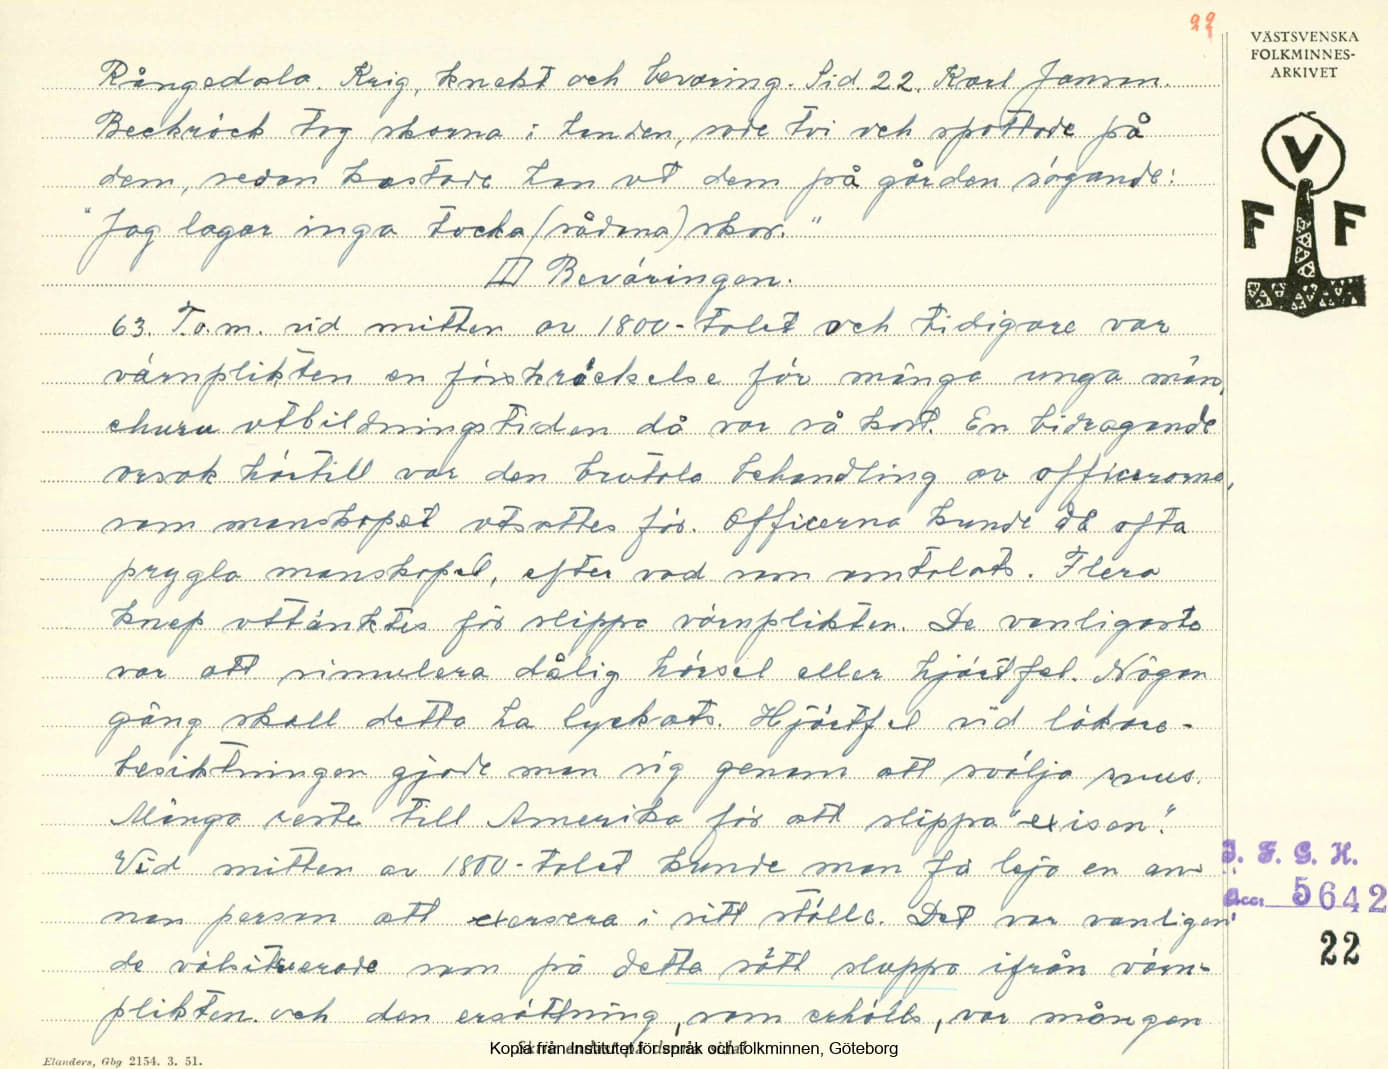 22
VÄSTSVENSKA
FOLKMINNES-
ARKIVET
Rångedala. Krig, knekt och bevaring. Sid. 22. Karl Janson.
Beckröck tog skorna i handen, sade tvi och spottade på
dem, sedan kastade han ut dem på gården sägande:
"Jag lagar inga tocka (sådana) skor."
II Beväringen.
63. T.o.m. vid mitten av 1800-talet och tidigare var
värnplikten en förskräckelse för många unga män,
churu utbildningstiden då var så kort. En bidragande
orsak härtill var den brutala behandling av officerarna,
som manskapet utsattes för. Officerna kunde då ofta
prygla manskapet, efter vad som omtalats. Flera
knep uttänktes för slippa värnplikten. De vanligaste
var att simulera dålig hörsel eller hjärtfel. Någon
gång skall detta ha lyckats. Hjärtfel vid läkare-
besiktningen gjorde man sig genom att svälja snus.
Många reste till Amerika för att slippa "exisen".
Vid mitten av 1800-talet kunde man få leja en an-
nan person att exersera i sitt ställe. Det var vanligen
de välsituerade som på detta sätt sluppo ifrån värn-
plikten och den ersättning, som erhölls, var mången
V
F F
I. F. G. H.
Acc: 5642
22
Kopia från Institutet för språk och folkminnen, Göteborg
Elanders, Gbg 2154. 3. 51.